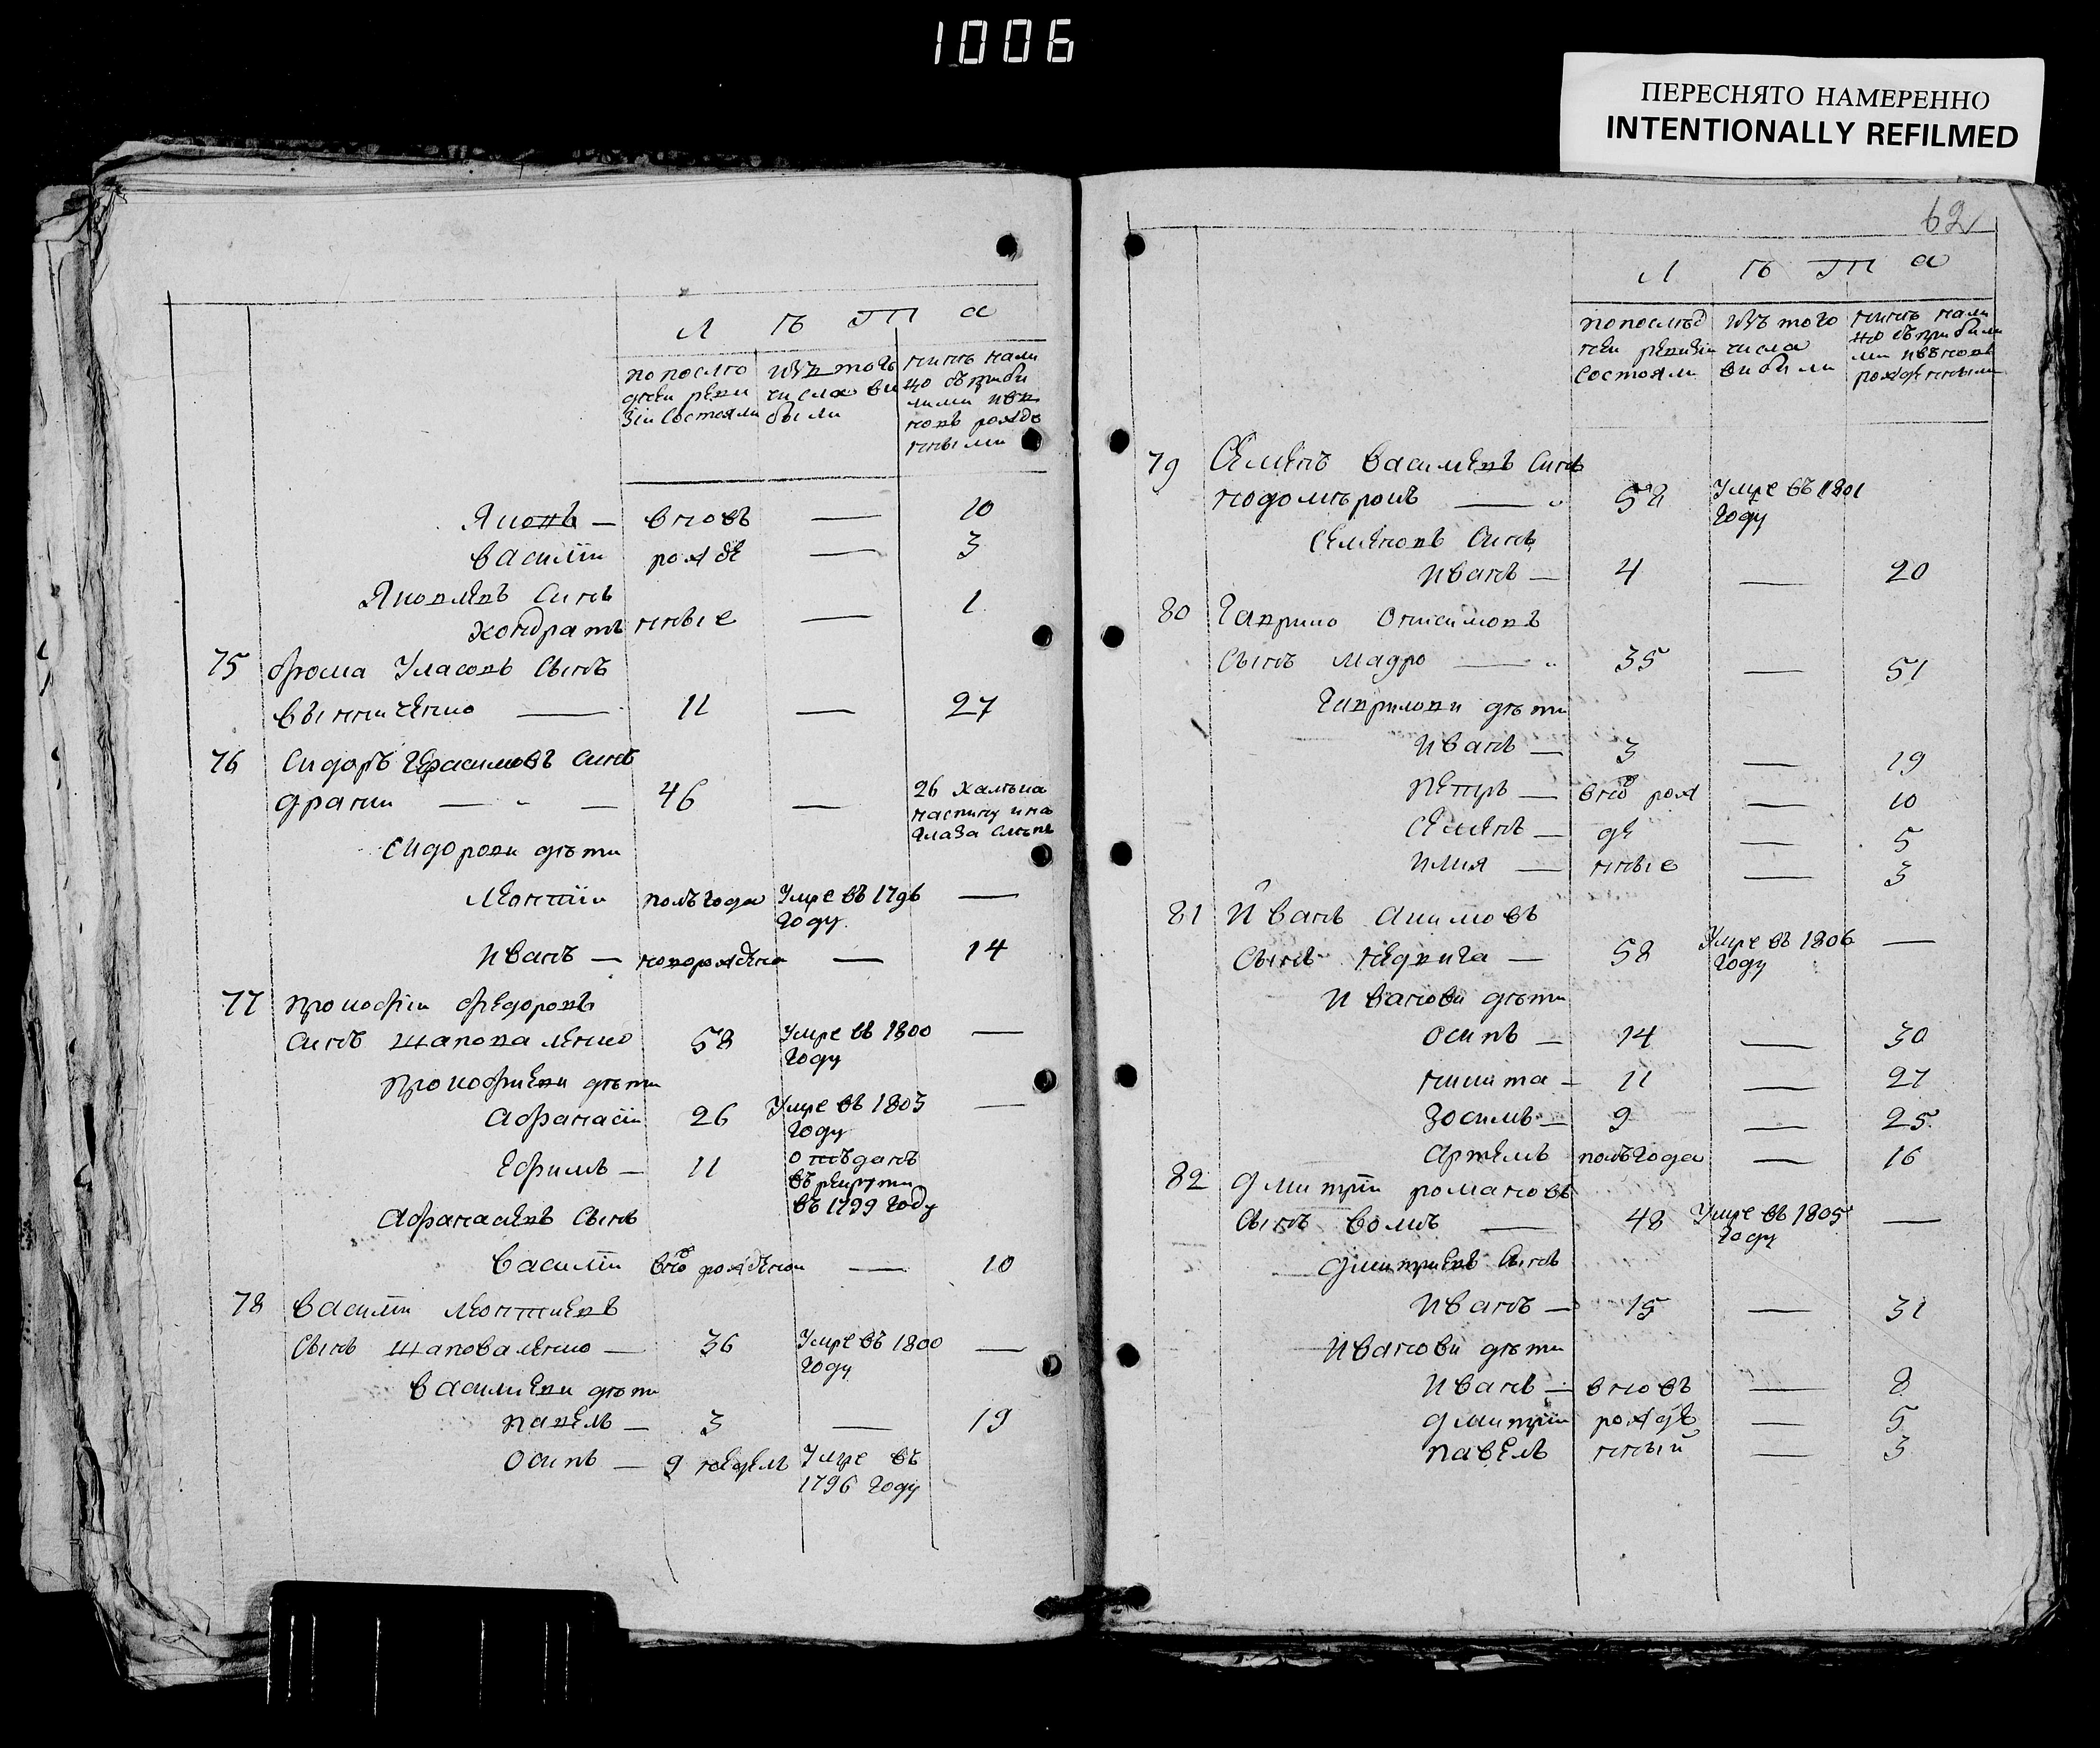 1006
ПЕРЕСНЯТО НАМЕРЕННО
INTENTIONALLY REFILMED
Л ѣ т а
по послѣ
дней реви
зіи состояли
изъ того
числа вы
были
нинѣ нали
цо съ приби
лими и въ
новь рожде
нными
Яковъ — вновь — 10
Василій рожде — 3
Яковлевъ Синъ
Кондратъ нные — 1
75 Фрома Уласовъ Сынъ
Винниченко — 11 — 27
76 Сидоръ Герасимовъ Синъ
драгни — 46 —
26
глаза
Сидорови дѣти
Леонтій полъгода Умре въ 1796
году —
Иванъ — новорожденъ — 14
77 Прокофій Федоровъ
Синъ Шаповаленко 58 Умре въ 1800
году —
Прокофиеви дѣти
Афанасій 26 Умре въ 1803
году —
Ефимъ — 11 отъданъ
въ рекруты
въ 1799 году
Афанасиевъ Сынъ
Василій вно рожденой — 10
78 Василій Леонтиевъ
Сынъ Шаповаленко — 36 Умре въ 1800
году —
Василиеви дѣти
Павелъ — 3 — 19
Осипъ — 9 недель Умре въ
1796 году
62
Л ѣ т а
по послѣд
ней ревизіи
состояли
изъ того
числа
вибили
нинѣ нали
цо съ прибили
ми и въ новь
рожденными
79 Семенъ Василиевъ Синъ
Кодолѣровъ — 58 Умре въ 1801
году
Семеновъ Синъ
Иванъ — 4 — 20
80 Гаврило Онисимовъ
Сынъ Мадро — 35 — 51
Гаврилови дѣти
Иванъ — 3 — 19
Петръ — вно рож — 10
Семенъ — де — 5
Илия — нные — 3
81 Иванъ Акимовъ
Сынъ Недвига — 58 Умре въ 1806
году —
Иванови дѣти
Осипъ — 14 — 30
Никита — 11 — 27
Зосимъ — 9 — 25
Артемъ полъгода — 16
82 Дмитрій Романовъ
Сынъ Волиъ — 48 Умре въ 1805
году —
Дмитриевъ Сынъ
Иванъ — 15 — 31
Иванови дѣти
Иванъ — вновь — 8
Дмитрій рожде — 5
Павелъ нный — 3